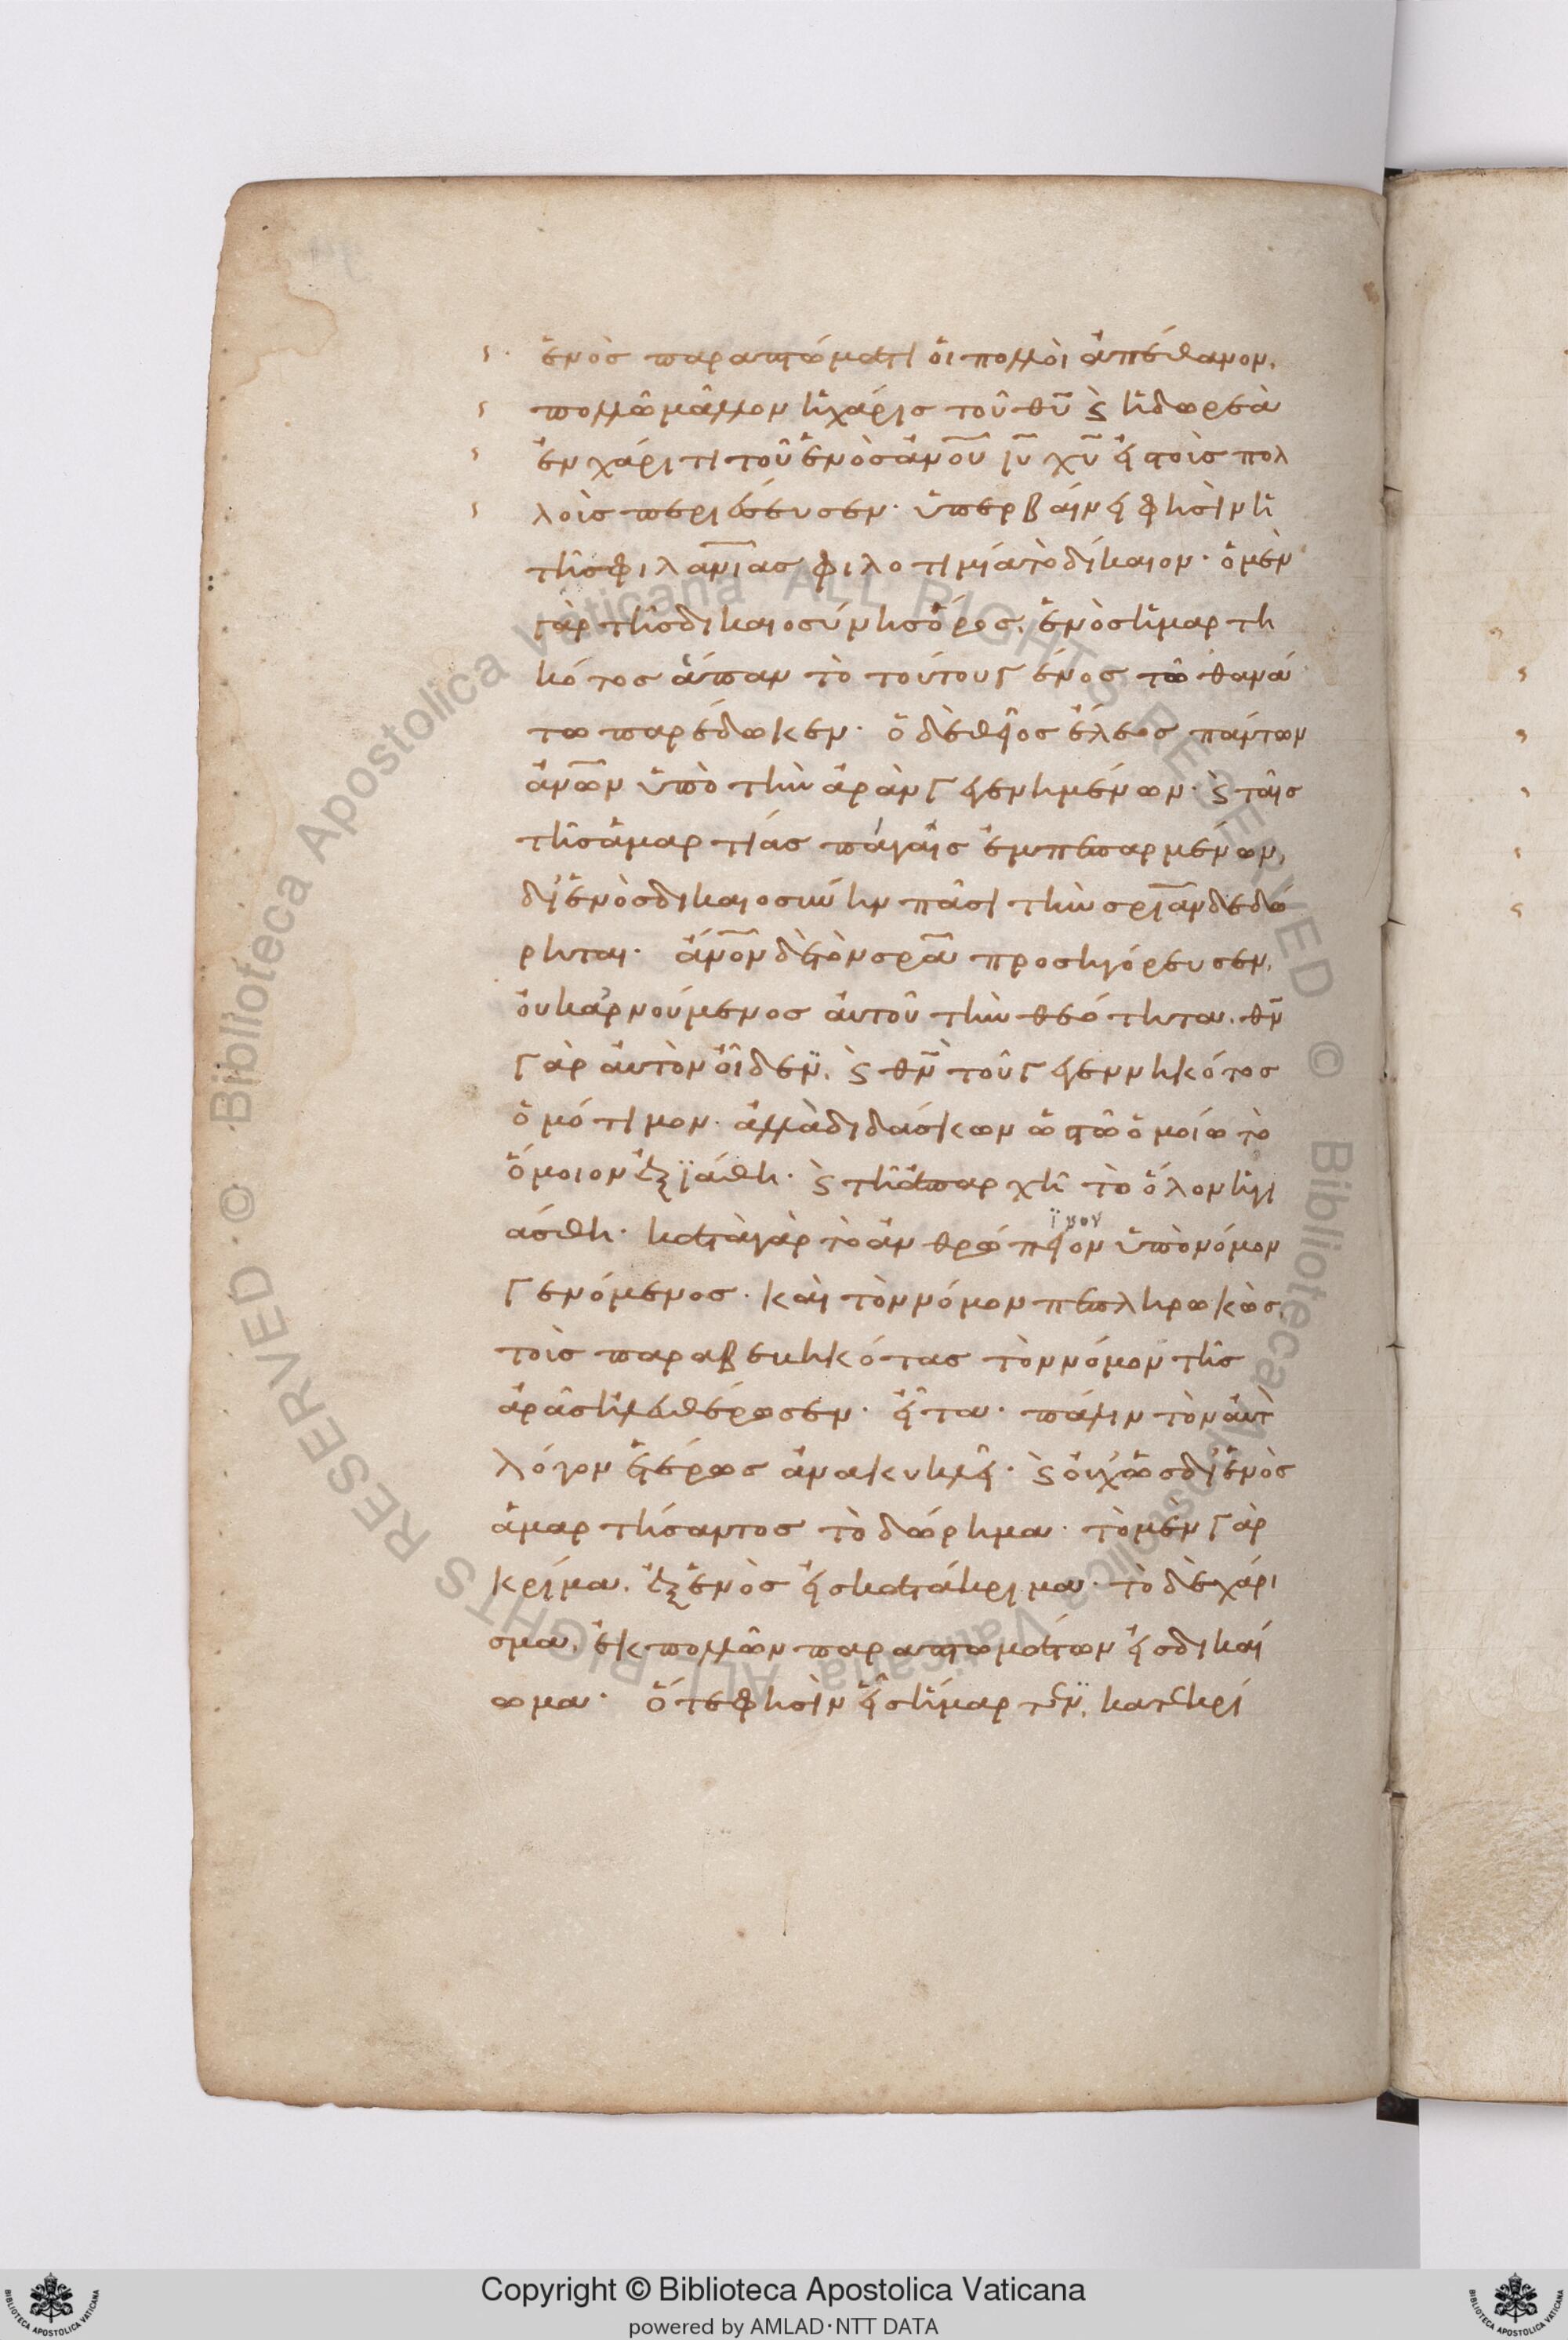 ἑνὸς παραπτώματι οἱ πολλοὶ ἀπέθανον,
πολλῶ μᾶλλον ἡ χάρις τοῦ θυ ϗ ἡ δωρεὰ
ἐν χάριτι τοῦ ἑνὸς ἀνου ιυ χυ εἰς τοὺς πολ
λοὺς περιέσευσεν· ὑπερβαίνει φησὶν ἡ
τῆς φιλανιας φιλοτιμία τὸ δίκαιον· ὁ μὲν
γὰρ τῆς δικαιοσύνης ὅρος, ἑνὸς ἡμαρτη
κότος ἅπαν τὸ τούτου γένος τῶ θανά
τω παρέδωκεν· ὁ δὲ θεῖος ἔλεος πάντων
ἀνων ὑπὸ τὴν ἀρὰν γεγενημένων· ϗ ταῖς
τῆς ἁμαρτίας πάγαις ἐμπεπαρμένων,
δι' ἑνὸς δικαιοσύνην πᾶσι τὴν σριαν δεδώ
ρηται· ἄνον δὲ τὸν σρα προσηγόρευσεν,
οὐκ ἀρνούμενος αὐτοῦ τὴν θεότητα. θν
γὰρ αὐτὸν οἶδεν, ϗ θν τοῦ γεγεννηκότος
ὁμότιμον· ἀλλὰ διδάσκων ὡς τῶ ὁμοίω τὸ
ὅμοιον ἐξϊάθη· ϗ τῆ ἀπαρχῆ τὸ ὅλον ἡγι
άσθη· κατὰ γὰρ τὸ ἀνθρώπειον ὑπὸ νόμον
ϊνον
γενόμενος· καὶ τὸν νόμον πεπληρωκὼς,
τοὺς παραβεβηκότας τὸν νόμον τῆς
ἀρᾶς ἠλευθέρωσεν· εἶτα· πάλιν τὸν αὐτ
λόγον ἑτέρως ἀνακυκλεῖ· ϗ οὐχ' ὡς δι' ἑνὸς
ἁμαρτήσαντος τὸ δώρημα· τὸ μὲν γὰρ
κρίμα, ἐξ ἑνὸς εἰς κατάκριμα· τὸ δὲ χάρι
σμα, ἐκ πολλῶν παραπτωμάτων εἰς δικαί
ωμα· ὅτε φησὶν εἷς ἥμαρτεν, κατεκρί
Copyright © Biblioteca Apostolica Vaticana
powered by AMLAD·NTT DATA